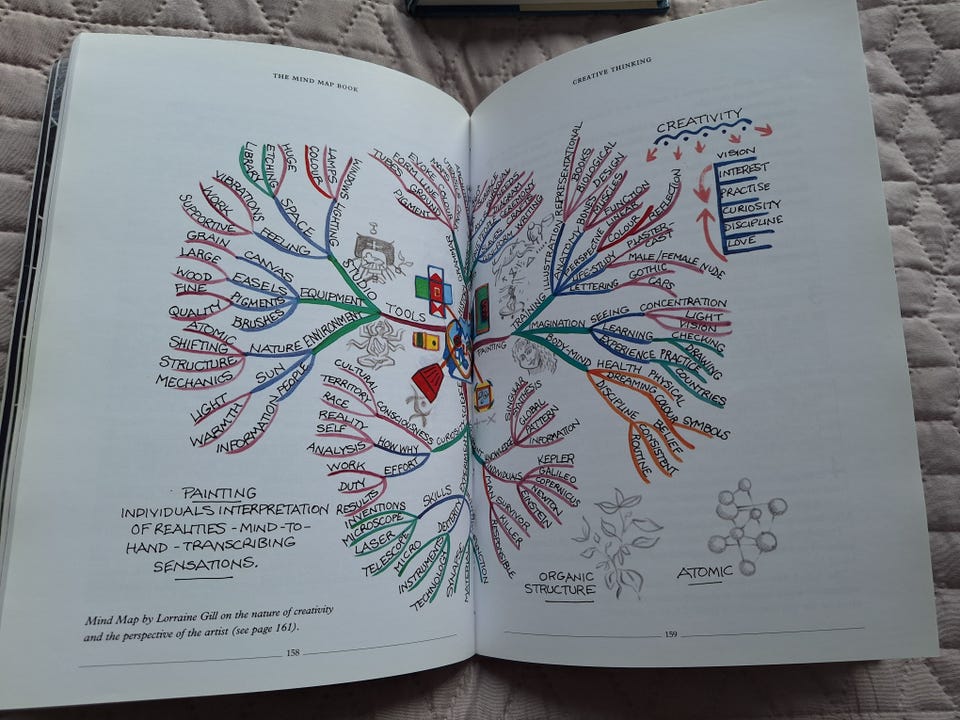 THE MIND MAP BOOK
LIBRARY
ETCHING
HUGE
COLOUR
LAMPS
WINDOWS
VIBRATIONS
WORK
SUPPORTIVE
SPACE
LIGHTING
FEELING
GRAIN
LARGE
WOOD
FINE
QUALITY
CANVAS
EASELS
PIGMENTS
BRUSHES
STUDIO
EQUIPMENT
ENVIRONMENT
TOOLS
ATOMIC
SHIFTING
STRUCTURE
MECHANICS
NATURE
SUN
PEOPLE
LIGHT
WARMTH
INFORMATION
TUBES
FORM
EVOKE
GROUND
PIGMENT
CULTURAL
TERRITORY
RACE
REALITY
SELF
ANALYSIS
CONSCIOUSNESS
HOW WHY
EFFORT
WORK
DUTY
RESULTS
SKILLS
DEXTERITY
INVENTIONS
MICROSCOPE
LASER
TELESCOPE
MICRO
INSTRUMENTS
TECHNOLOGY
SYNAPSE
PAINTING
INDIVIDUALS INTERPRETATION
OF REALITIES - MIND-TO-
HAND - TRANSCRIBING
SENSATIONS.
Mind Map by Lorraine Gill on the nature of creativity
and the perspective of the artist (see page 161).
158
CREATIVE THINKING
CREATIVITY
VISION
INTEREST
PRACTISE
CURIOSITY
DISCIPLINE
LOVE
REPRESENTATIONAL
BOOKS
BIOLOGICAL
DESIGN
MUSCLES
BONES
FUNCTION
LINEAR
COLOUR
REFLECTION
ILLUSTRATION
ANATOMY
PERSPECTIVE
LIFE-STUDY
LETTERING
PLASTER
CAST
MALE/FEMALE NUDE
GOTHIC
CAPS
TRAINING
PAINTING
IMAGINATION
BODY-MIND
SEEING
LEARNING
EXPERIENCE
CONCENTRATION
LIGHT
VISION
CHECKING
PRACTICE
DRAWING
COUNTRIES
HEALTH
PHYSICAL
DREAMING
COLOUR
SYMBOLS
DISCIPLINE
BELIEF
CONSISTENT
ROUTINE
SYNTHESIS
GLOBAL
PATTERN
INFORMATION
INDIVIDUALS
KEPLER
GALILEO
COPERNICUS
NEWTON
EINSTEIN
MAN
SURVIVOR
KILLER
RESPONSIBLE
ORGANIC
STRUCTURE
ATOMIC
159